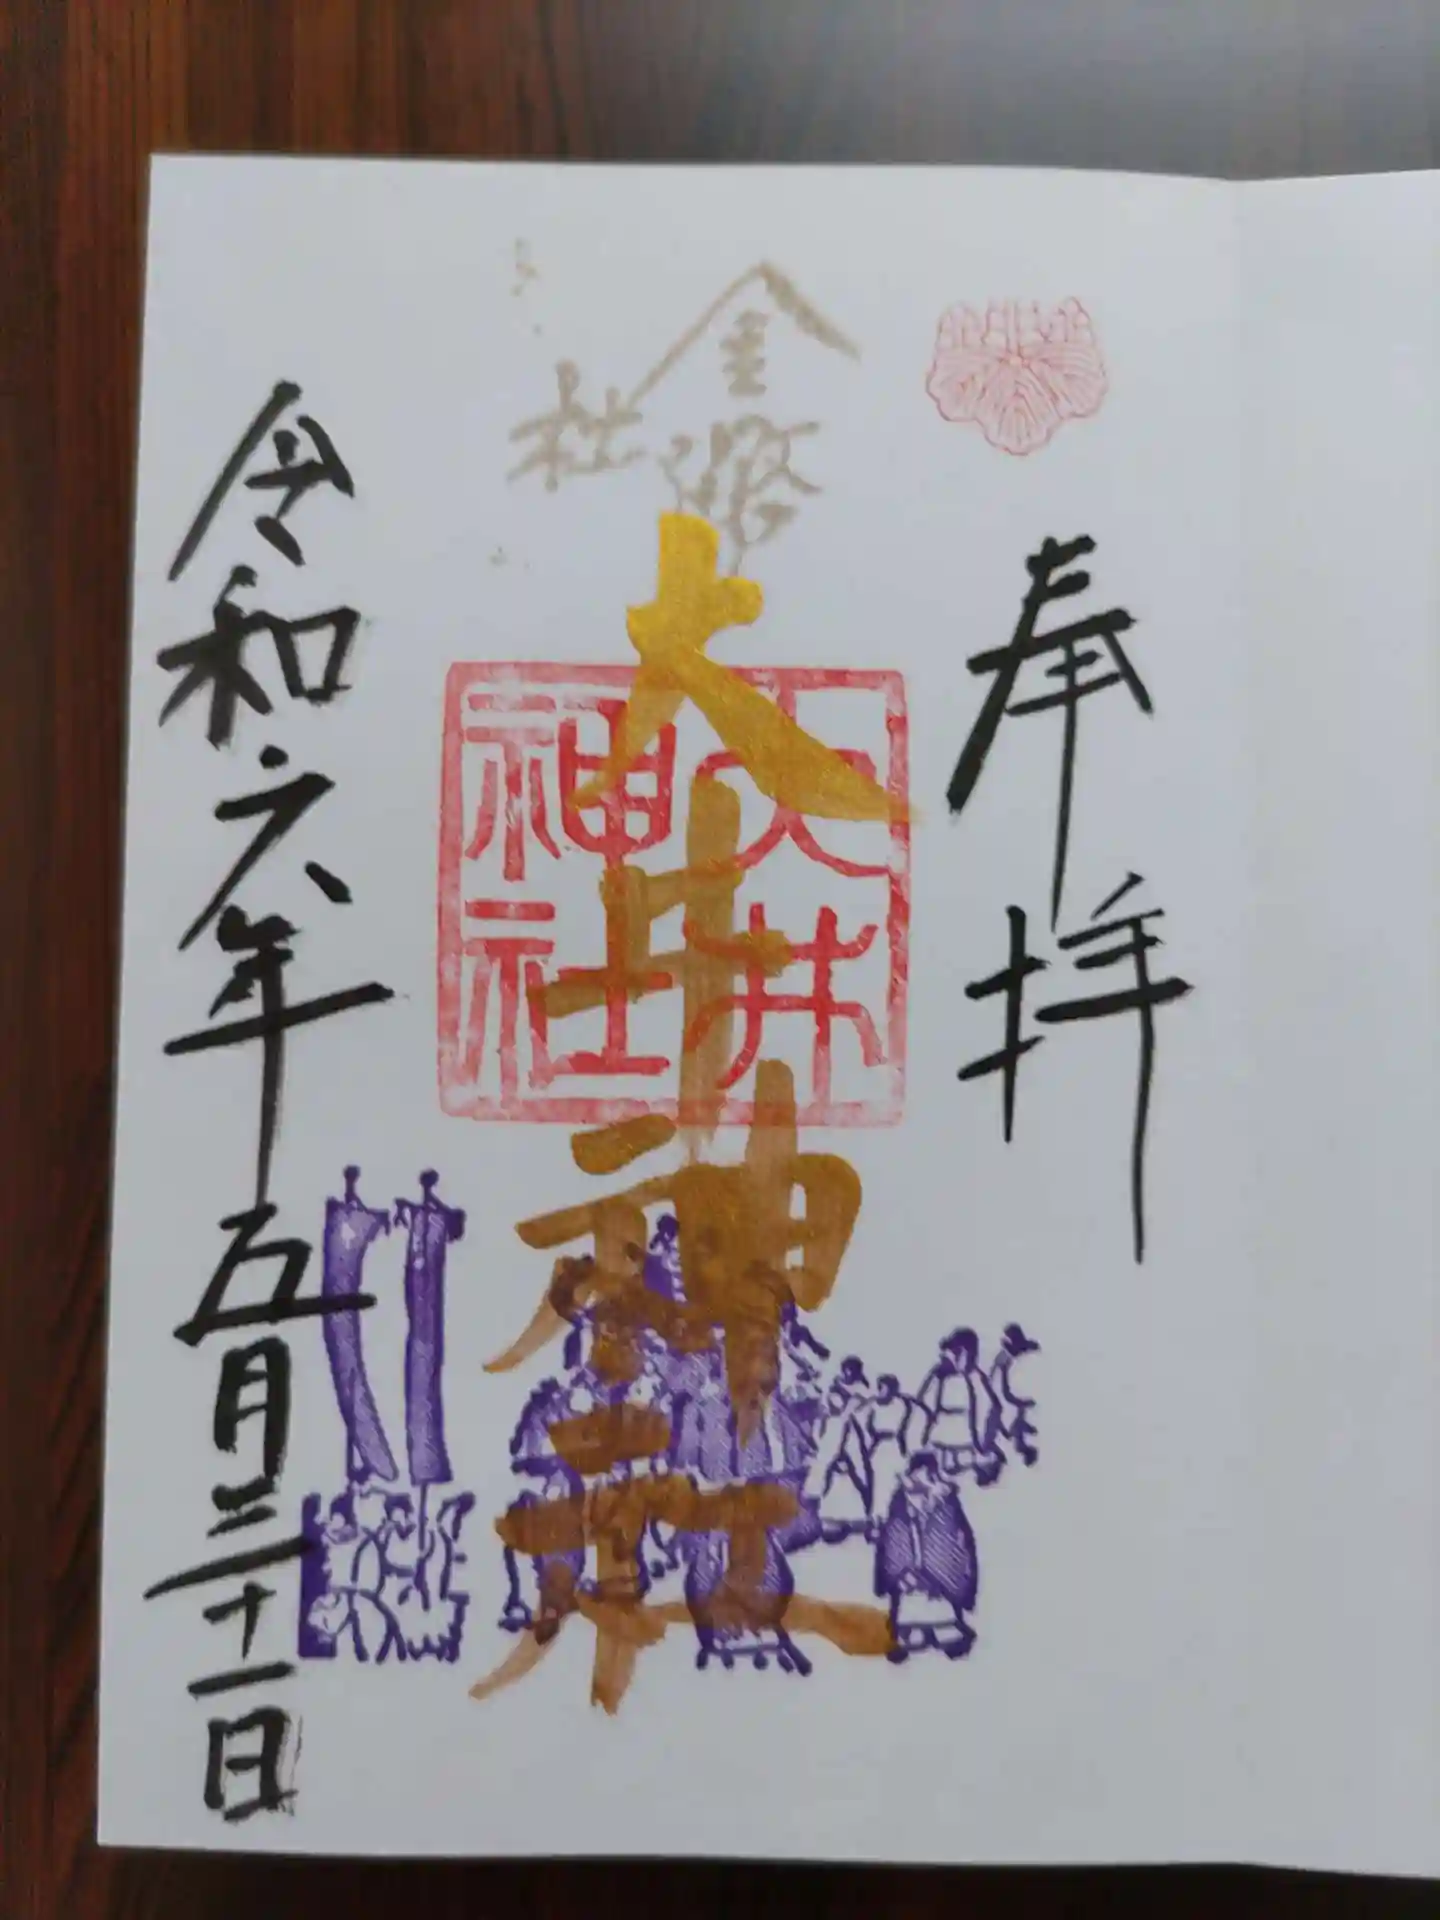 奉拝
大井神社
大井神社
令和六年五月三十一日